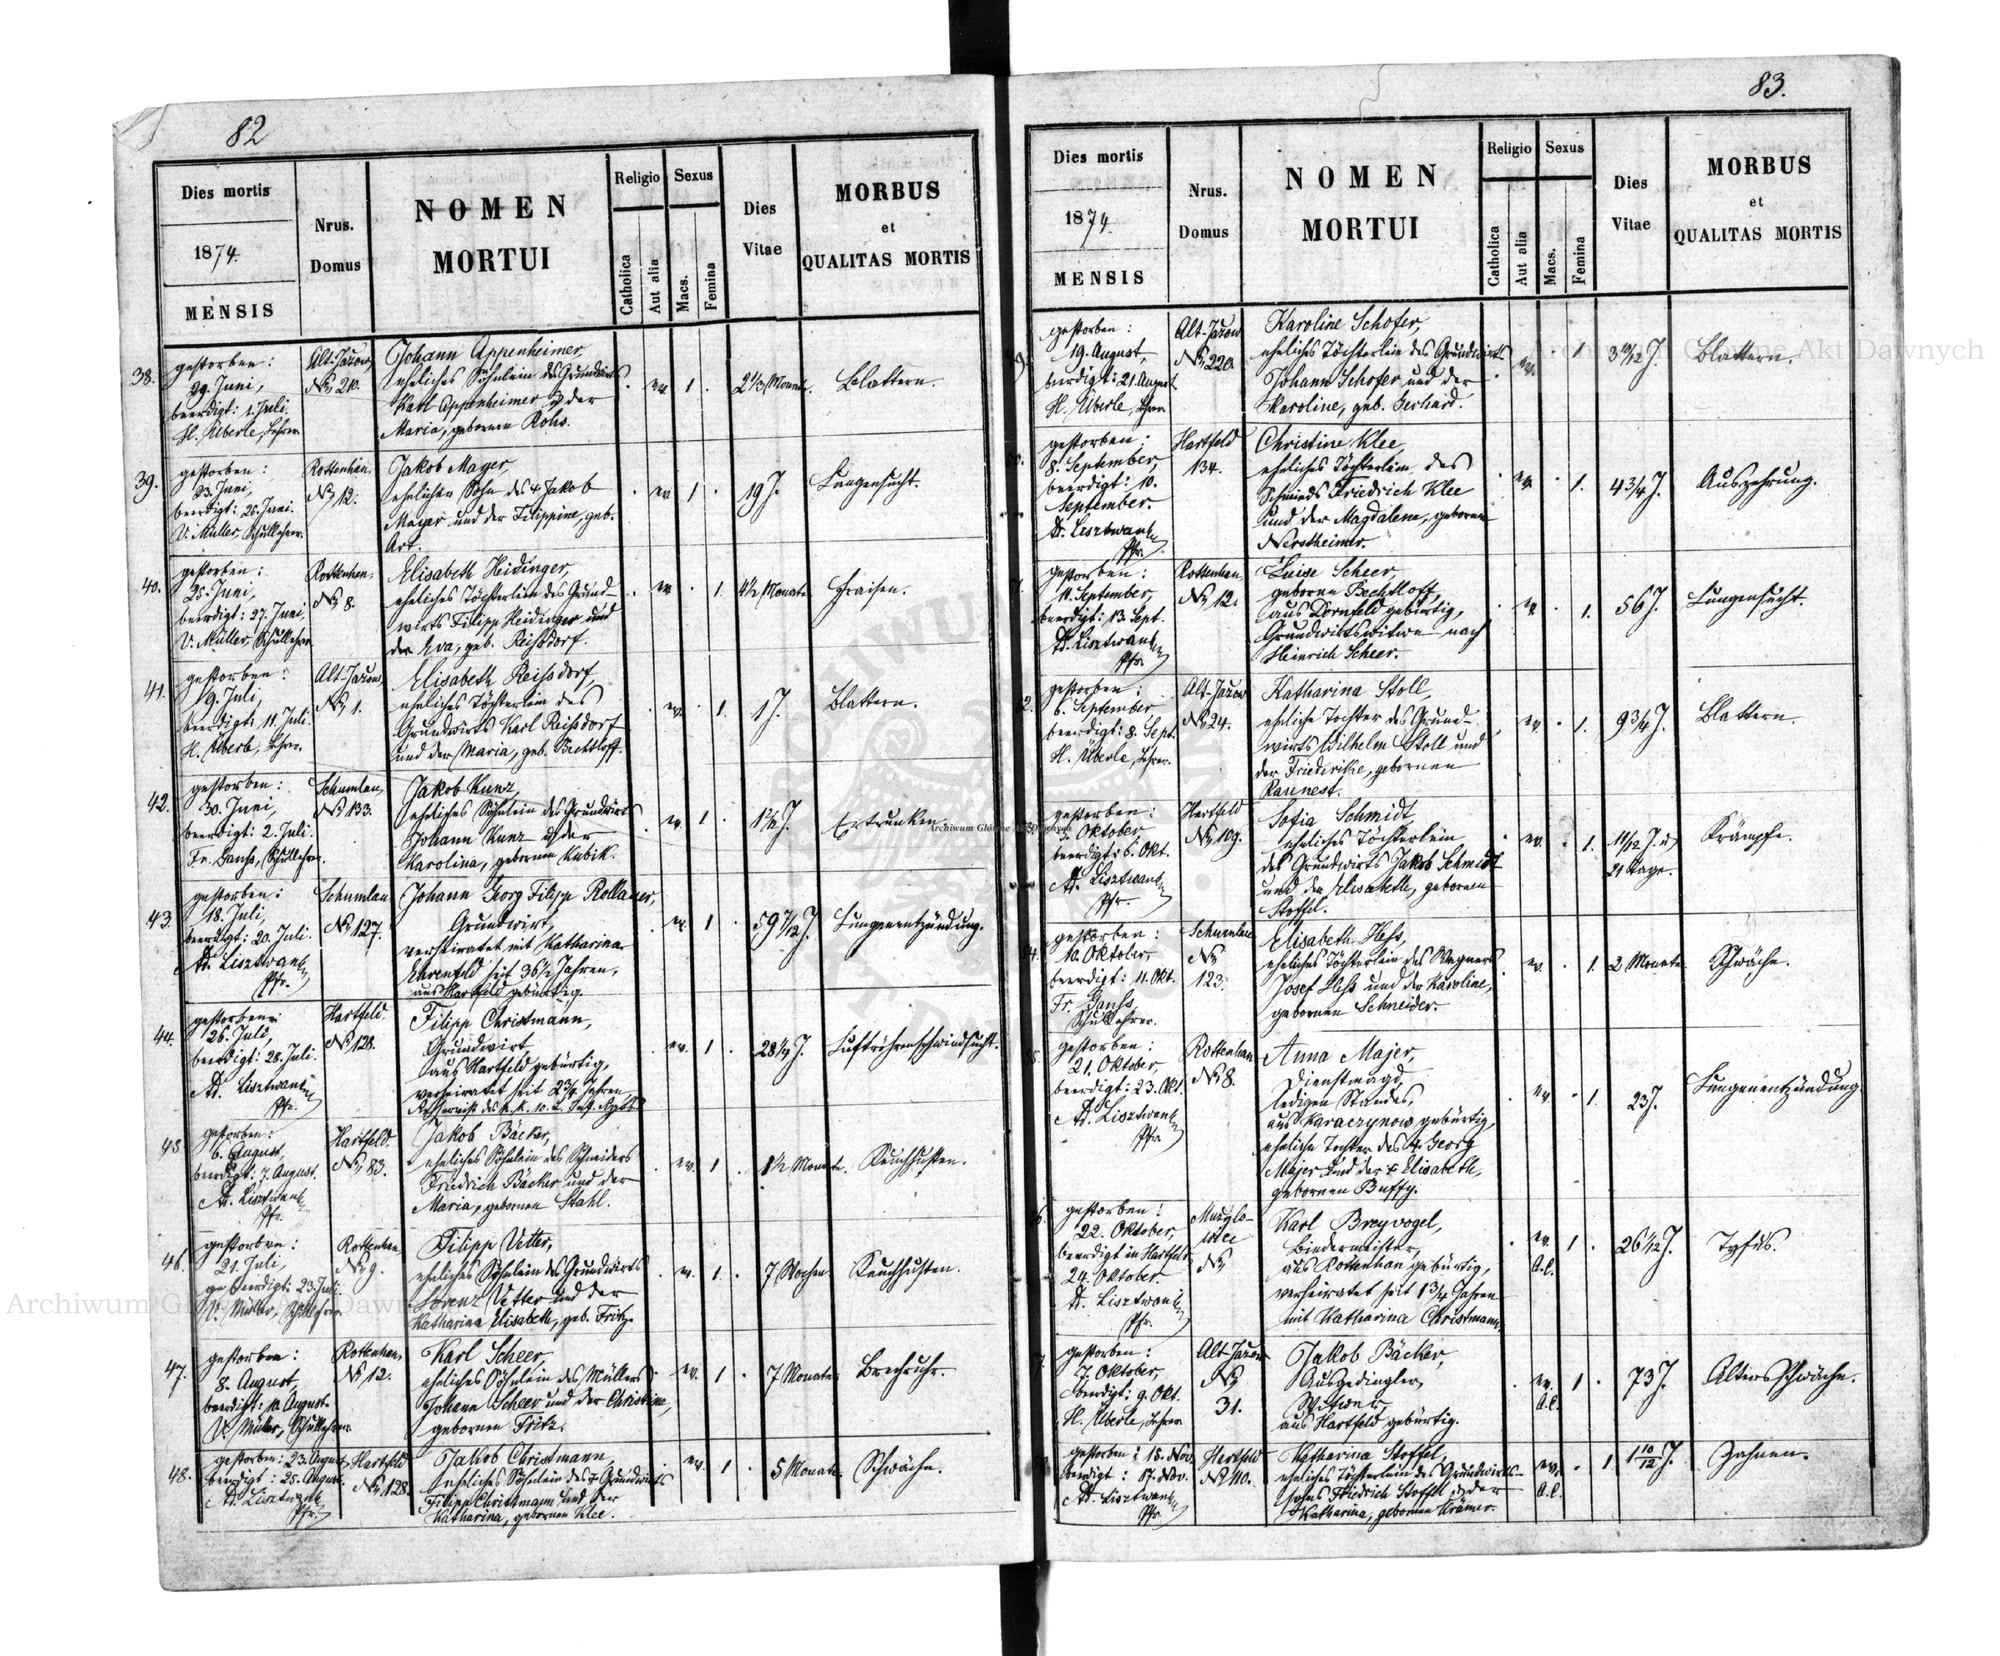 82
Dies mortis
1874.
MENSIS
Nrus.
Domus
NOMEN
MORTUI
Religio
Catholica
Aut alia
Sexus
Macs.
Femina
Dies
Vitae
MORBUS
et
QUALITAS MORTIS
38.
gestorben:
29. Juni,
beerdigt: 1. Juli.
H. Überle, Lehrer
Alt-Jazow
№ 210.
Johann Appenheimer,
eheliches Söhnlein des Grundwirts
Karl Appenheimer u der
Maria, gebornen Rohs.
ev. 1
2 1/3 Monate.
Blattern.
39.
gestorben:
23. Juni,
beerdigt: 25. Juni.
V. Müller, Schullehrer.
Rottenhan.
№ 12.
Jakob Mayer,
ehelicher Sohn des + Jakob
Mayer und der Filippine, geb.
Art.
ev. 1
19 J.
Lungensucht.
40.
gestorben:
25. Juni,
beerdigt: 27. Juni,
V. Müller, Schullehrer
Rottenhan.
№ 8.
Elisabeth Heidinger,
eheliches Töchterlein des Grund-
wirts Filipp Heidinger und
der Eva, geb. Reißdorf.
ev. 1
4 1/2 Monate
Fraisen.
41.
gestorben:
9. Juli,
beerdigt: 11. Juli.
H. Überle, Lehrer.
Alt-Jazow,
№ 1.
Elisabeth Reißdorf,
eheliches Töchterlein des
Grundwirts Karl Reißdorf
und der Maria, geb. Bechtloff.
ev. 1.
1 J.
Blattern.
42.
gestorben:
30. Juni,
beerdigt: 2. Juli.
Fr. Ganß, Schullehrer.
Schumlau,
№ 133.
Jakob Kunz,
eheliches Söhnlein des Grundwirts
Johann Kunz u der
Karolina, gebornen Kubik.
ev. 1
Ertrunken.
43.
gestorben:
18. Juli,
beerdigt: 20. Juli.
Ad. Lisztwan
Pfr.
Schumlau
№ 127.
Johann Georg Filipp Rollauer,
Grundwirt,
verheiratet mit Katharina
Ehrenfeld seit 36 1/2 Jahren,
aus Hartfeld gebürtig.
ev. 1
59 7/12 J.
Lungenentzündung.
44.
gestorben:
26. Juli,
beerdigt: 28. Juli.
Ad. Lisztwan
Pfr.
Hartfeld
№ 128.
Filipp Christmann,
Grundwirt
aus Hartfeld gebürtig,
verheiratet seit 2 3/4 Jahren,
ev. 1
28 1/4 J.
Luftröhrenschwindsucht.
45
gestorben:
6. August,
beerdigt: 7. August.
Ad. Lisztwan
Pfr.
Hartfeld.
№ 83.
Jakob Bäcker,
eheliches Söhnlein des Schneiders
Friedrich Bäcker und der
Maria, gebornen Stahl.
ev. 1
1 1/2 Monate.
Keuchhusten.
46.
gestorben:
21. Juli,
beerdigt: 23. Juli.
V. Müller, Schullehrer
Rottenhan
№ 9.
Filipp Vetter,
eheliches Söhnlein des Grundwirts
Lorenz Vetter und der
Katharina Elisabeth, geb. Fritz.
ev. 1.
7 Wochen
Keuchhusten.
47.
gestorben:
8. August,
beerdigt: 10. August.
V. Müller, Schullehrer
Rottenhan,
№ 12.
Karl Scheer,
eheliches Söhnlein des Müllers
Johann Scheer und der Christine,
gebornen Fritz.
ev. 1
7 Monate
Brechruhr.
48.
gestorben: 23. August
beerdigt: 25. August.
Ad. Lisztwan
Pfr.
Hartfeld
№ 128.
Jakob Christmann,
eheliches Söhnlein des + Grundwirts
Filipp Christmann und der
Katharina, gebornen Klee.
ev. 1
5 Monate.
Schwäche.
83.
Dies mortis
1874.
MENSIS
Nrus.
Domus
NOMEN
MORTUI
Religio
Catholica
Aut alia
Sexus
Macs.
Femina
Dies
Vitae
MORBUS
et
QUALITAS MORTIS
gestorben:
19. August,
beerdigt: 21. August
H. Überle, Lehrer
Alt-Jazow
№ 220.
Karoline Schofer,
eheliches Töchterlein des Grundwirts
Johann Schofer und der
Karoline, geb. Gerhard.
ev. 1
3 10/12 J.
Blattern.
gestorben:
8. September,
beerdigt: 10.
September.
Ad. Lisztwan
Pfr.
Hartfeld
134.
Christine Klee,
eheliches Töchterlein des
Schmieds Friedrich Klee
und der Magdalena, gebornen
Nerstheimer.
ev. 1.
4 3/4 J.
Auszehrung.
gestorben:
11. September,
beerdigt: 13. Sept.
Ad. Lisztwan
Pfr.
Rottenhan,
№ 12.
Luise Scheer,
geboren Bechtloff,
aus Dornfeld gebürtig,
Grundwirtswitwe nach
Heinrich Scheer.
ev. 1.
56 J.
Lungensucht.
gestorben:
6. September
beerdigt: 8. Sept.
H. Überle, Lehrer.
Alt-Jazow
№ 24.
Katharina Stoll,
eheliche Tochter des Grund-
wirts Wilhelm Stoll und
der Friederike, gebornen
Rannest.
ev. 1.
9 3/4 J.
Blattern.
gestorben:
Oktober,
beerdigt: 6. Okt.
Ad. Lisztwan
Pfr.
Hartfeld
№ 109.
Sofia Schmidt,
eheliches Töchterlein
des Grundwirts Jakob Schmidt
und der Elisabeth, gebornen
Stoffel.
ev. 1.
11/12 J. u
21 Tage.
Krämpfe.
gestorben:
10. Oktober,
beerdigt: 11. Okt.
Fr. Ganß,
Schullehrer.
Schumlau
№
123.
Elisabeth Heß,
eheliches Töchterlein des Wagners
Josef Heß und der Karoline,
gebornen Schneider.
ev. 1.
2 Monate.
Schwäche.
gestorben:
21. Oktober,
beerdigt: 23. Okt.
Ad. Lisztwan
Pfr.
Rottenhan
№ 8.
Anna Majer,
Dienstmagd,
ledigen Standes,
aus Karaczynow gebürtig,
eheliche Tochter des + Georg
Majer und der + Elisabeth,
gebornen Buffy.
ev. 1.
23 J.
Lungenentzündung
gestorben:
22. Oktober,
beerdigt in Hartfeld
24. Oktober.
Ad. Lisztwan
Pfr.
№
Karl Breyvogel,
aus Rottenhan gebürtig,
verheiratet seit 1 3/4 Jahren
mit Katharina Christmann.
ev.
A.C.
1
26 1/12 J.
Tyfus.
gestorben:
7. Oktober,
beerdigt: 9. Okt.
H. Überle, Lehrer
Alt-Jazow
№
31.
Jakob Bäcker,
Ausgedingler,
Witwer,
aus Hartfeld gebürtig.
ev.
A.C.
1
73 J.
Altersschwäche.
gestorben: 15. Nov.
beerdigt: 17. Nov.
Ad. Lisztwan
Pfr.
Hartfeld
№ 110.
Katharina Stoffel,
eheliches Töchterlein des Grundwirts-
sohns Friedrich Stoffel u der
Katharina, gebornen Krämer.
ev.
A.C.
1
1 10/12 J.
Zahnen.
Archiwum Główne Akt Dawnych